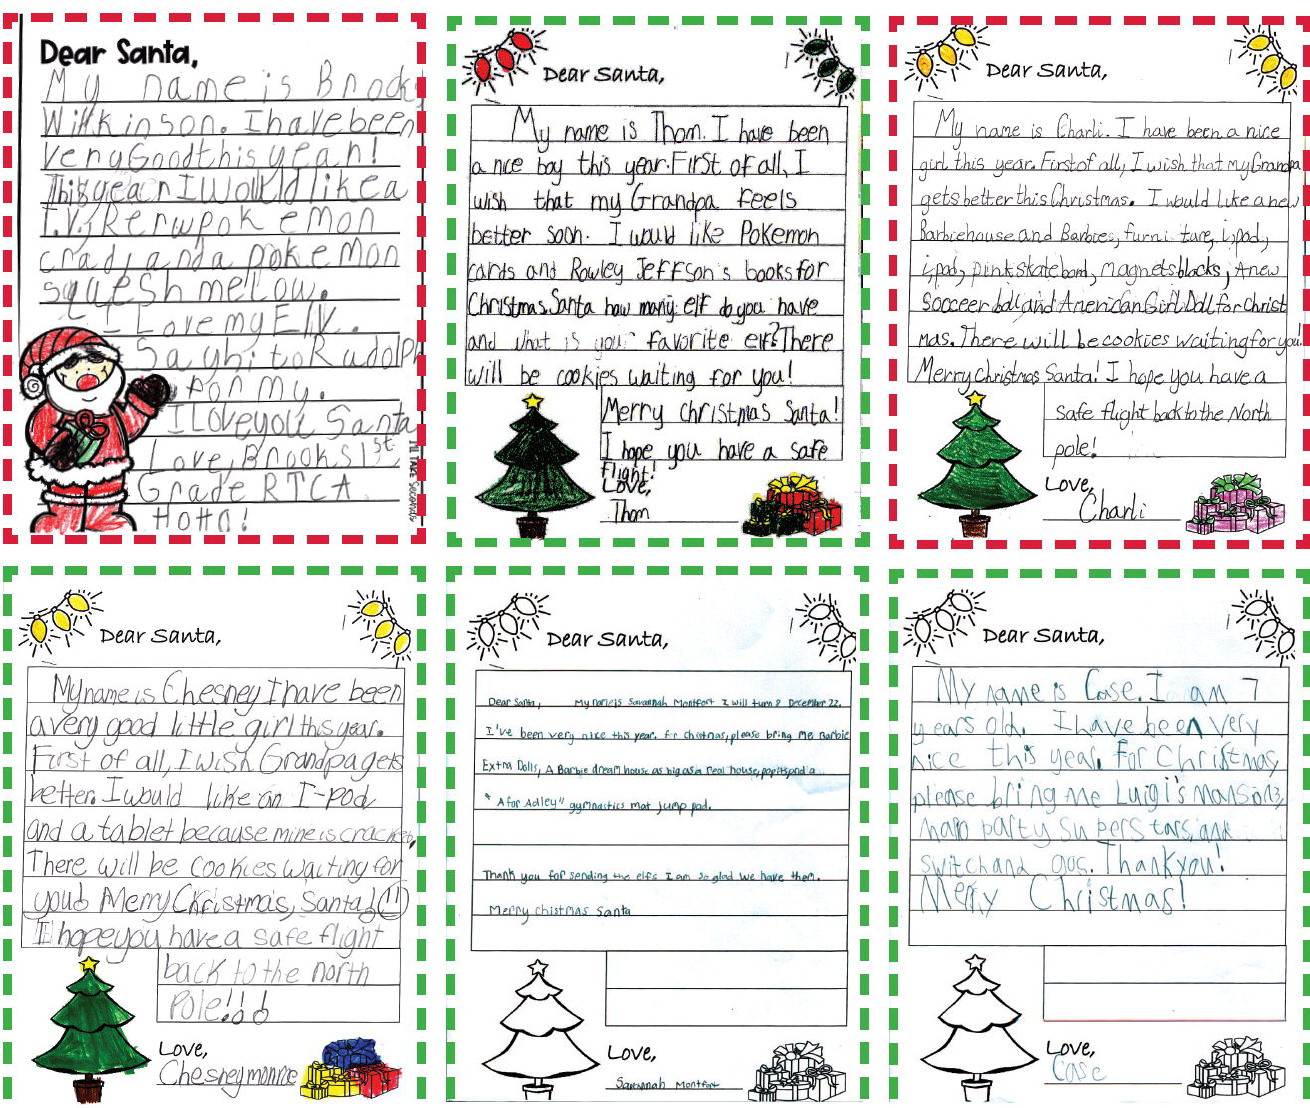 Dear Santa,
My name is Brooks
Wilkinson. I have been
very Good this year!
This year I would like a
T.V,
pokemon
crads, and a pokemon
squeshmellow.
I Love my Elf.
Say hi to Rudolph
for my.
I Love you Santa
Love, Brooks 1st
Grade RTCA
HoHo!
Dear Santa,
My name is Thom. I have been
a nice boy this year. First of all, I
wish that my Grandpa Feels
better soon. I would like Pokemon
cards and Rowley Jeffson's books for
Christmas. Santa how many elf do you have
and what is your favorite elf? There
will be cookies waiting for you!
Merry christmas Santa!
I hope you have a safe
flight!
Love,
Thom
Dear Santa,
My name is Charli. I have been a nice
girl this year. First of all, I wish that my Grandpa
gets better this Christmas. I would like a new
Barbie house and Barbies, furni ture, ipod,
ipad, pink skate bord, magnets blocks, A new
Sooceer ball and American Girl Doll for Christ
mas. There will be cookies waiting for you!
Merry christmas Santa! I hope you have a
safe flight back to the North
pole!
Love,
Charli
Dear Santa,
My name is Chesney I have been
a very good little girl this year.
First of all, I wish Grandpa gets
better. I would like an I-pod
and a tablet because mine is cracket,
There will be cookies waiting for
you! Merry Christmas, Santa!
I hope you have a safe flight
back to the north
Pole!!!
Love,
Chesney monroe
Dear Santa,
Dear Santa, My name is Savannah Montfort I will turn 8 December 22.
I've been very nice this year. For chistmas, please bring me Barbie
Extra Dolls, A Barbie dream house as big as a real house, popits and a
"A for Adley" gymnastics mat jump pad.
Thank you for sending the elfs I am so glad we have them.
Merry chistmas Santa
Love,
Savannah Montfort
Dear Santa,
My name is Case. I am 7
years old. I have been very
nice this year. For Christmas,
please bring me Luigi's Mansion 3,
mario party superstars, and
switch and ogs. Thank you!
Merry Christmas!
Love,
Case